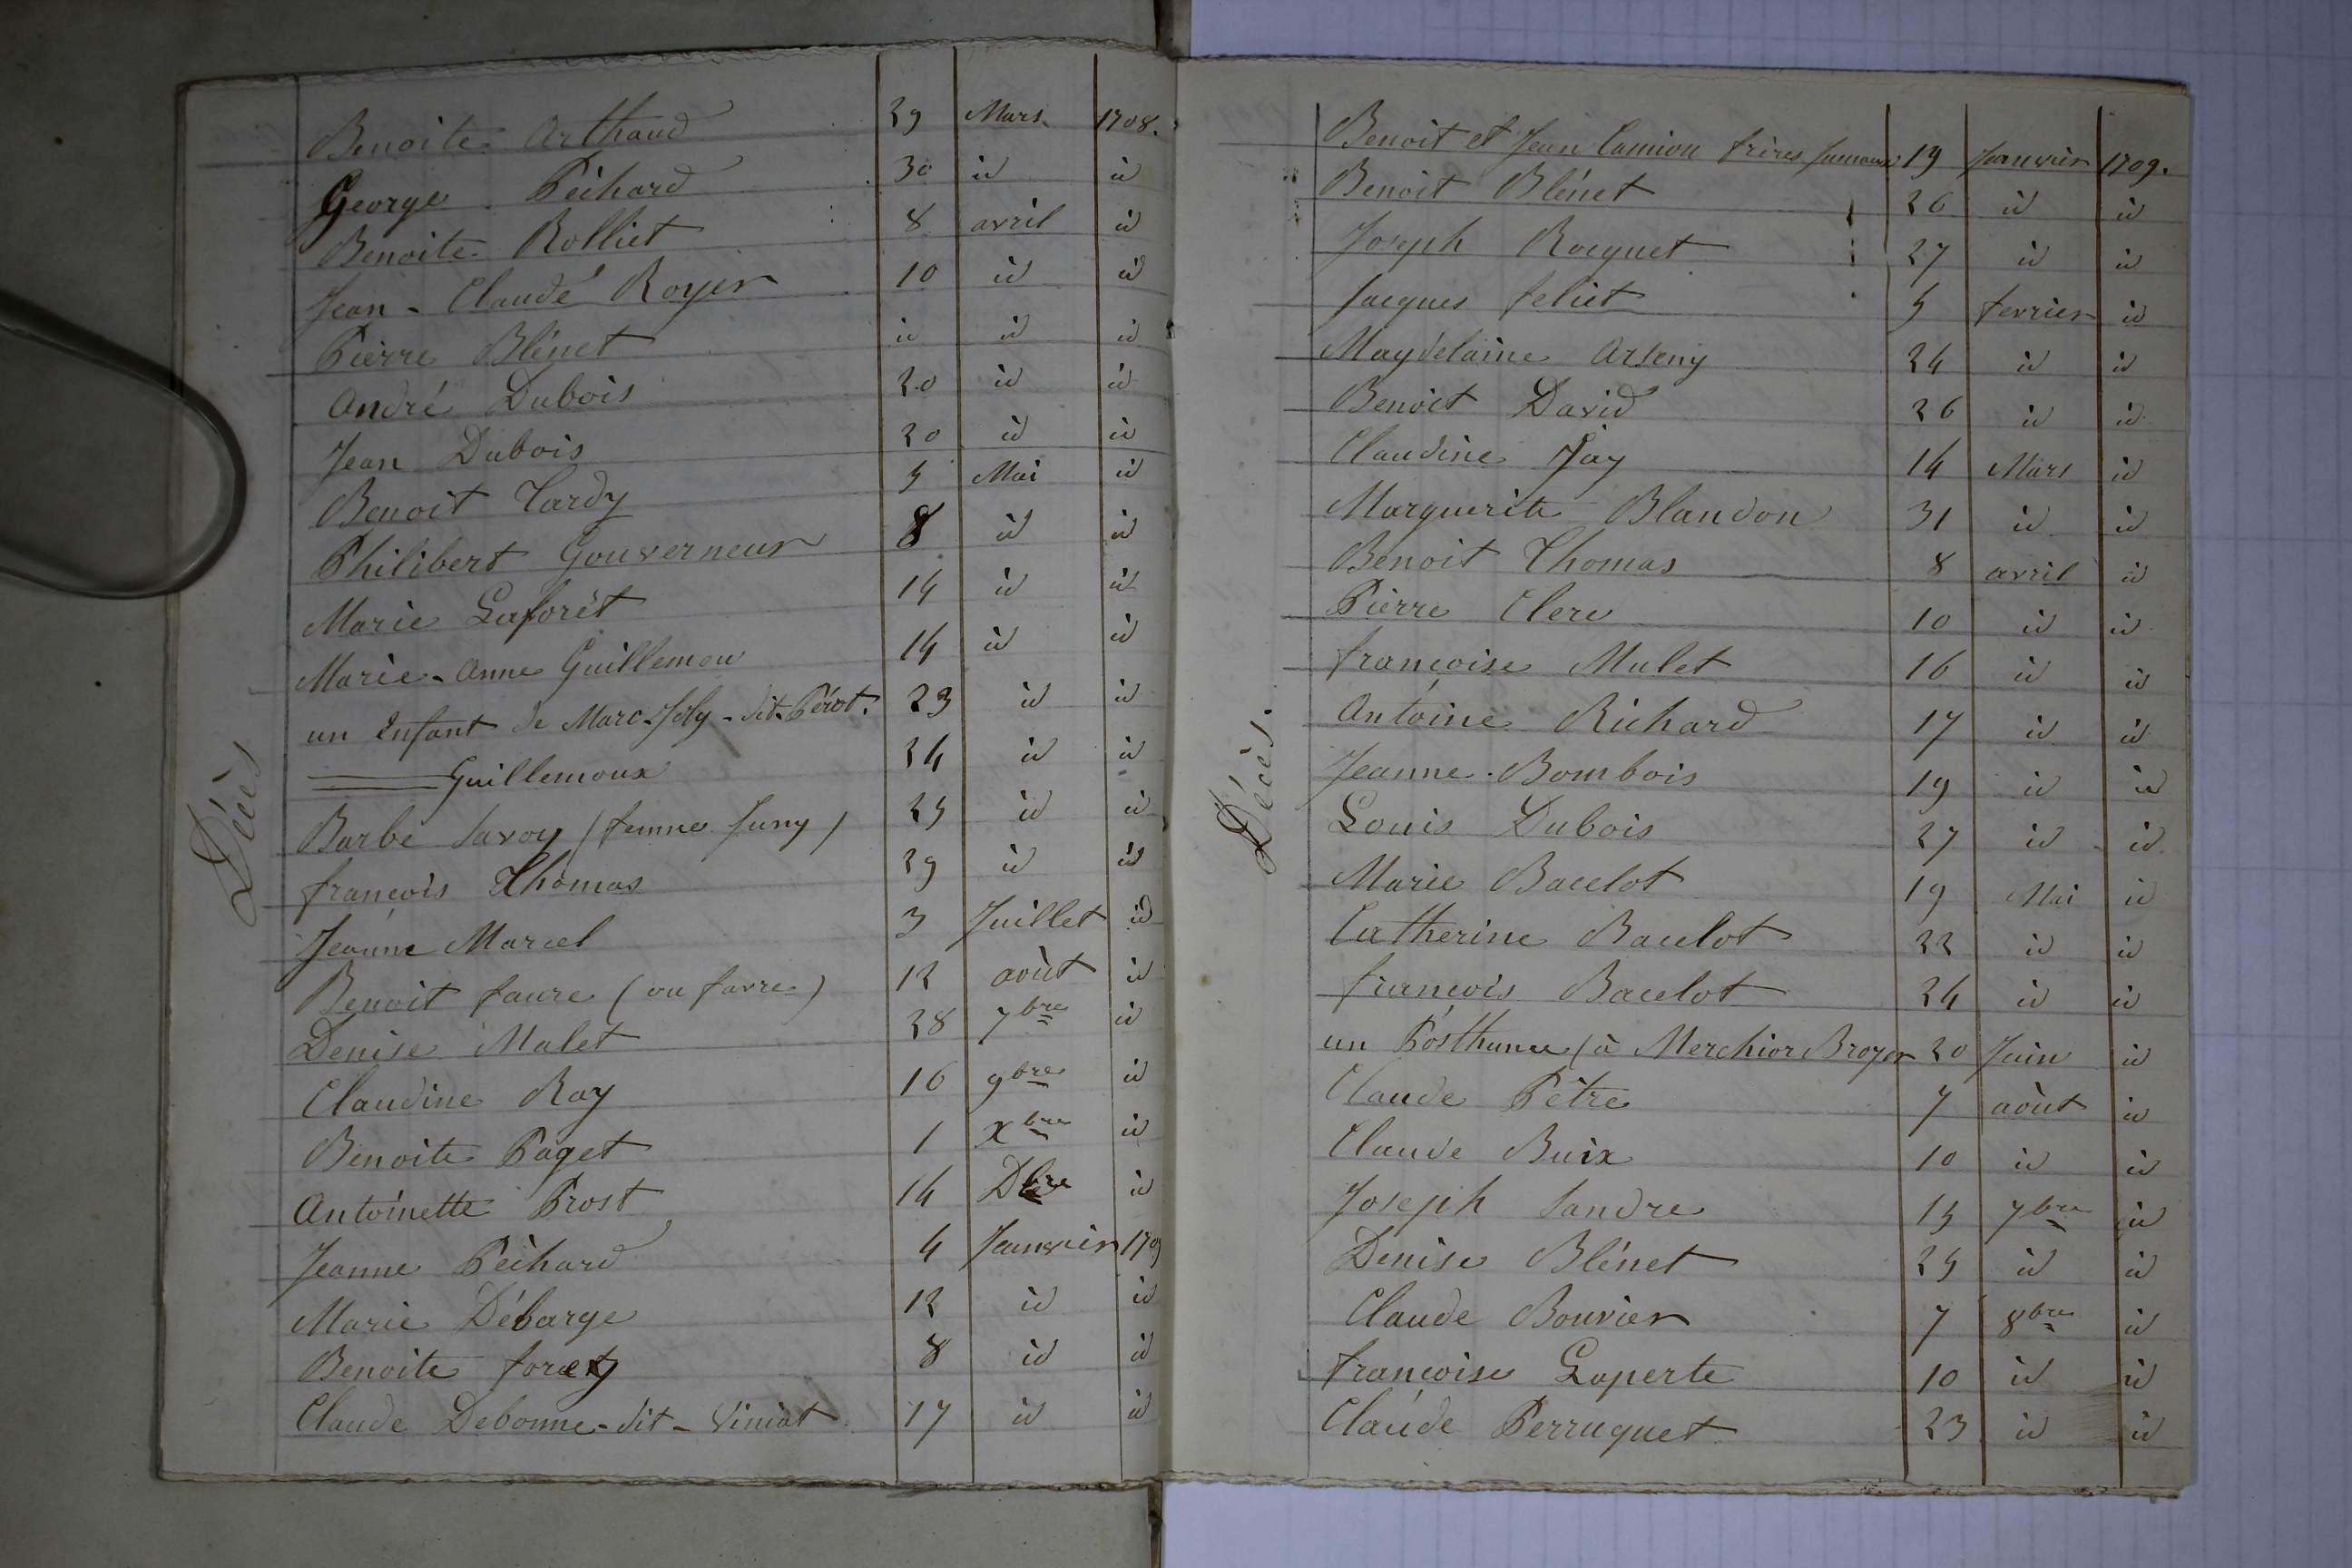 Décès
Benoite Arthaud 29 Mars 1708.
George Péchard 30 id id
Benoite Rolliet 8 avril id
Jean-Claude Royer 10 id id
Pierre Blénet id id id
André Dubois 20 id id
Jean Dubois 20 id id
Benoit Tardy 5 Mai id
Philibert Gouverneur 8 id id
Marie Laforêt 14 id id
Marie-Anne Guillemou 14 id id
un Enfant de Marc-Joly-dit-Pérot. 23 id id
Guillemoux 24 id id
Barbe Savoy (femme Juny) 25 id id
françois Thomas 29 id id
Jeanne Marcel 3 Juillet id
Benoit faure (ou favre) 12 août id
Denise Malet 28 7bre id
Claudine Ray 16 9bre id
Benoite Paget 1 Xbre id
Antoinette Prost 14 Dbre id
Jeanne Péchard 4 Janvier 1709
Marie Débarge 12 id id
Benoite forety 8 id id
Claude Debonne-dit-Viniat 17 id id
Décès.
Benoit et Jean Camion frères Jumeaux 19 Janvier 1709.
Benoit Blénet 26 id id
Joseph Rocquet 27 id id
Jacques feliet 5 fevrier id
Magdelaine Arseny 24 id id
Benoit David 26 id id
Claudine Jay 14 Mars id
Marguerite Blandon 31 id id
Benoit Thomas 8 avril id
Pierre Clerc 10 id id
françoise Mulet 16 id id
Antoine Richard 17 id id
Jeanne Bombois 19 id id
Louis Dubois 27 id id
Marie Bacelot 19 Mai id
Catherine Bacelot 22 id id
françois Bacelot 24 id id
un Posthume (à Merchior Broyer 20 Juin id
Claude Pètre 7 août id
Claude Buix 10 id id
Joseph Sandre 15 7bre id
Denise Blénet 25 id id
Claude Bouvier 7 8bre id
françoise Laperte 10 id id
Claude Perruquet 23 id id